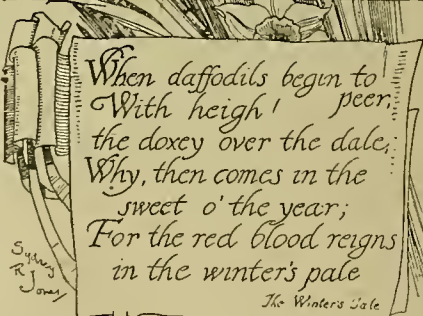 When daffodils begin to
peer,
With heigh!
the doxey over the dale,
Why, then comes in the
sweet o' the year;
For the red blood reigns
in the winter's pale
The Winter's Tale
Sydney
R
Jones